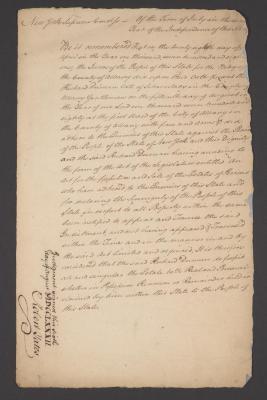 New York Supreme Court of the Term of July in the
Year of the Independence of the
Be it remembered that on the twenty eighth day of
in the Year one thousand seven hundred and
the Jurors of the People of this State for the Body of
the County of Albany did upon their Oath
Richard Duncan late of Schenectady in the County of
Albany Gentleman
the Year of our Lord one thousand seven hundred and
eighty at the first Ward of the City of Albany in
the County of Albany
adhere to the Enemies of this State against the Peace
of the People of the State of New York and their Dignity
and the said Richard Duncan having according to
the form of the Act of the Legislature entitled An
Act for the Forfeiture and Sale of the Estates of Persons
who have adhered to the Enemies of this State and
for declaring the Sovereignty of the People of this
State in respect to all Property within the same
been notified to appear and Traverse the said
Indictment and not having appeared & Traversed
within the Time and in the manner in and by
the said Act limited and required, it is therefore
considered that the said Richard Duncan do forfeit
all and singular the Estate both Real and Personal
whether in Possession Reversion or Remainder held or
claimed by him within this State to the People of
this State.
Judgment
MDCCLXXXII